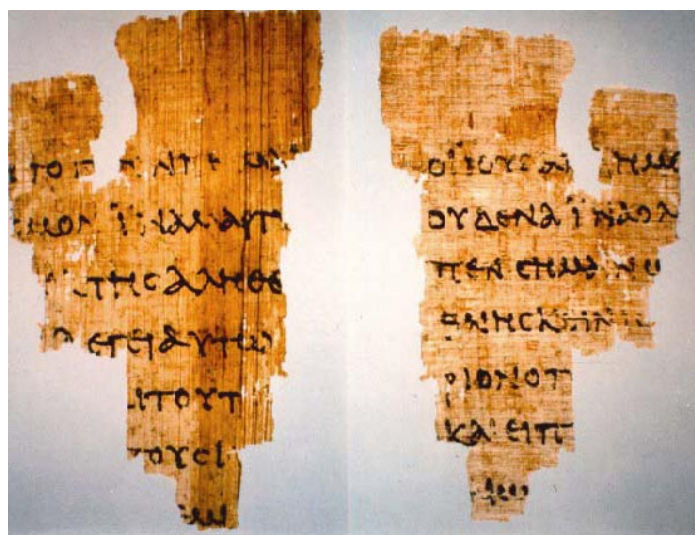 ϹΜΟΝ ΪΝΑ ΜΑΡΤΥ
ΤΗϹ ΑΛΗΘΕ
ΛΕΓΕΙ ΑΥΤΩ
ΑΙ ΤΟΥΤ
ΤΟΥϹ Ι
ΟΙ ΪΟΥΔΑΙ ΗΜΕ
ΟΥΔΕΝΑ ΪΝΑ Ο Λ
ΠΕΝ ϹΗΜΑΙΝΩ
ΘΝΗϹΚΕΙΝ
ΡΙΟΝ Ο Π
ΚΑΙ ΕΙΠ
ΑΙΩ